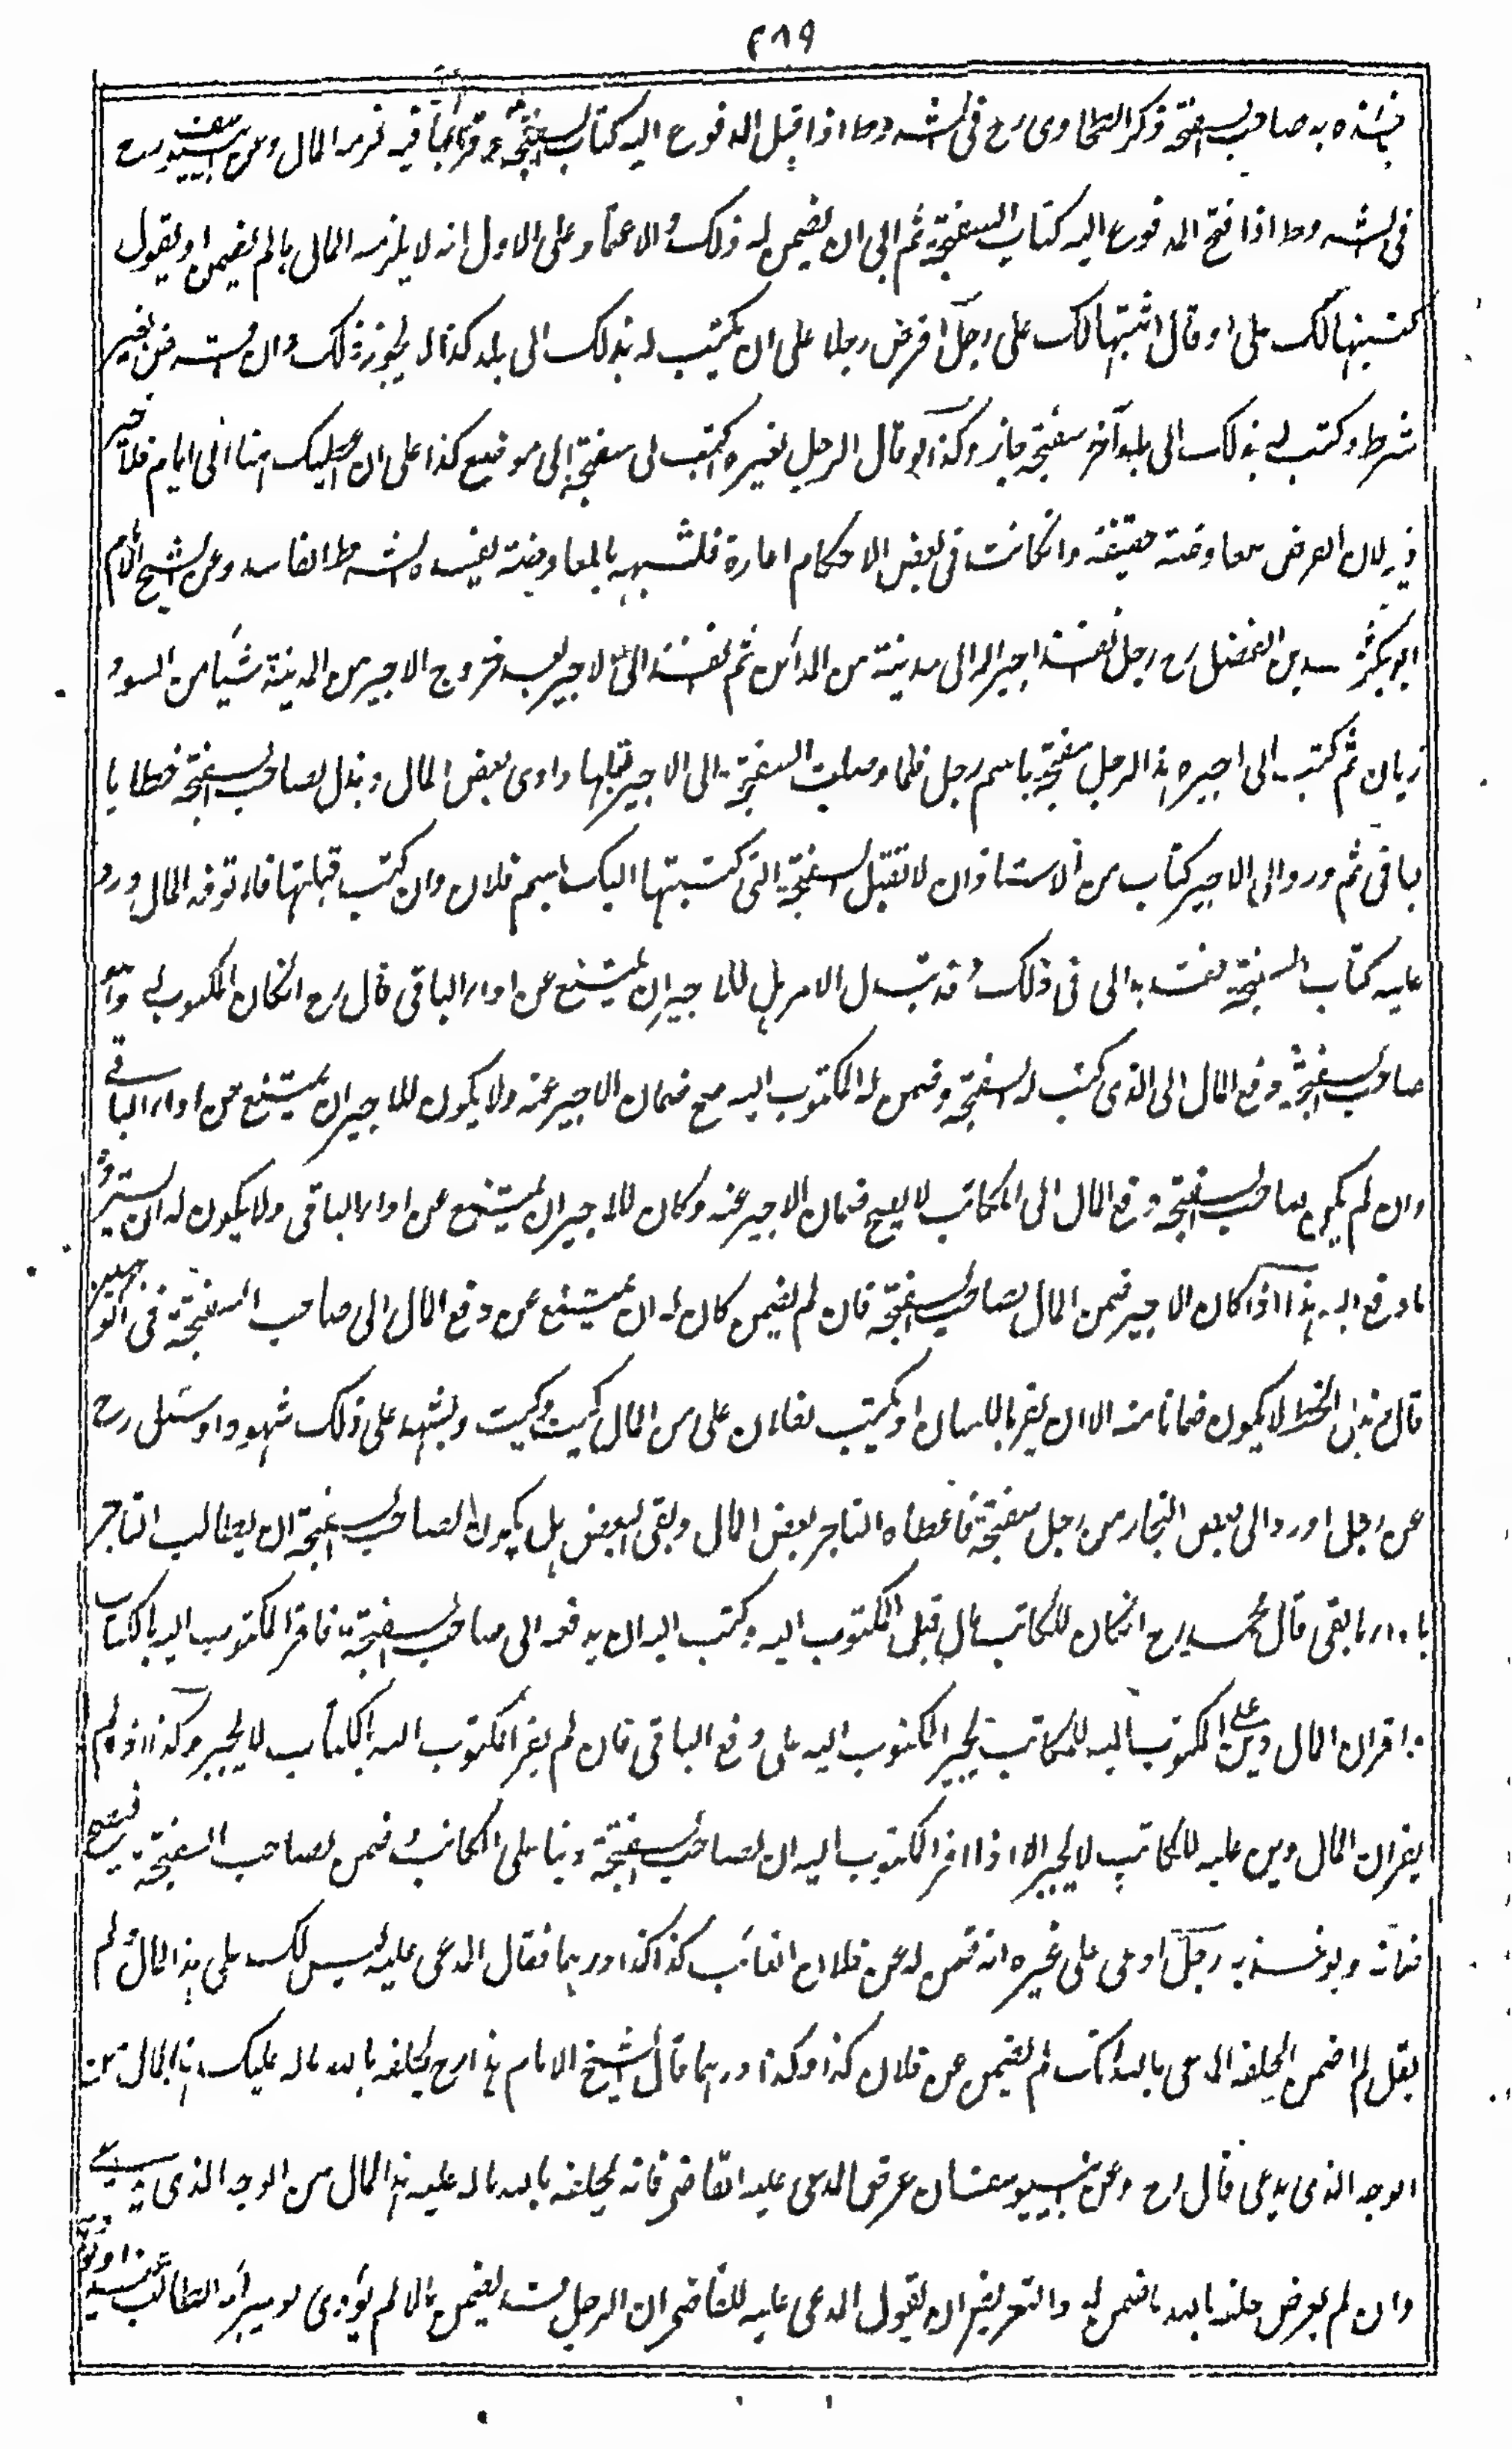 ٤٨٩
فيأخذه به صاحب السفتجة ذكر الطحاوى رح فى الشروط اذا قبل المدفوع اليه كتاب السفتجة و قرأ ما فيه لزمه المال وعن ابى يوسف رح
فى الشروط اذا فتح المدفوع اليه كتاب السفتجة ثم ابى ان يضمن له ذلك و الاعتماد على الاول انه لا يلزمه المال ما لم يضمن او يقول
كتبتها لك على او قال اثبتها لك على رجل اقرض رجلا على ان يكتب له بذلك الى بلد كذا لا يجوز ذلك وان اقرضه بغير
شرط وكتب له بذلك الى بلد آخر سفتجة جاز وكذا لو قال الرجل لغيره اكتب لى سفتجة الى موضع كذا على ان اعطيك هنا الى ايام فلا خير
فيه لان القرض معاوضة حقيقة وانكانت فى بعض الاحكام اعارة فلشبهه بالمعاوضة يفسده الشرط الفاسد وعن الشيخ الامام
ابو بكر محمد بن الفضل رح رجل بعث اجيرا له الى مدينة من المدائن ثم بعث الى الاجير بعد خروج الاجير من المدينة شيئا من
ثم كتب الى اجيره هذا الرجل سفتجة باسم رجل فلما وصلت السفتجة الى الاجير قبلها وادى بعض المال و بذل لصاحب السفتجة خطا با
لباقى ثم ورد الى الاجير كتاب من الاستاذ ان لا تقبل السفتجة التى كتبتها اليك باسم فلان وان كتب قبلتها فلا توفه المال ورد
عليه كتاب السفتجة فقد بدا لى فى ذلك و قد تبدل الامر هل للاجير ان يمتنع عن اداء الباقى قال رح انكان المكتوب له وهو
صاحب السفتجة دفع المال الى الذى كتب له السفتجة وضمن له المكتوب اليه صح ضمان الاجير عنه ولا يكون للاجير ان يمتنع عن اداء الباقى
وان لم يكن صاحب السفتجة دفع المال الى الكاتب لا يصح ضمان الاجير عنه وكان للاجير ان يمتنع عن اداء الباقى ولا يكون له ان يسترد
ما دفع اليه هذا اذا كان الاجير ضمن المال لصاحب السفتجة فان لم يضمن كان له ان يمتنع عن دفع المال الى صاحب السفتجة فى الوجهين
قال و بذل الخط لا يكون ضمانا منه الا ان يقر باللسان او يكتب لفلان على من المال كيت وكيت ويشهد على ذلك شهودا و سئل رح
عن رجل اورد الى بعض التجار من رجل سفتجة فاعطاه التاجر بعض المال وبقى البعض هل يكون لصاحب السفتجة ان يطالب التاجر
باداء ما بقى قال محمد رح انكان للكاتب مال قبل المكتوب اليه و كتب اليه ان يدفعه الى صاحب السفتجة فاقر المكتوب اليه بالكتاب
و اقر ان المال دين على المكتوب اليه للكاتب يجبر المكتوب اليه على دفع الباقى فان لم يقر المكتوب اليه بالكتاب لا يجبر وكذا اذا لم
يقر ان المال دين عليه للكاتب لا يجبر الا اذا اقر المكتوب اليه ان لصاحب السفتجة دينا على الكاتب و ضمن لصاحب السفتجة فيصح
ضمانه و يؤخذ به رجل ادعى على غيره انه ضمن له عن فلان الغائب كذا كذا درهما فقال المدعى عليه ليس لك على هذا المال و لم
يقل لم اضمن احلفه المدعى بالله ثم لم يضمن عن فلان كذا وكذا درهما قال الشيخ الامام هذا رح يحلفه بالله ما له عليك هذا المال من
الوجه الذى يدعى قال رح وعن ابى يوسف ان عرض المدعى عليه القاضى فانه يحلفه بالله ما له عليه هذا المال من الوجه الذى يدعى
وان لم يعرض حلفه بالله ما ضمن له والتعريض ان يقول المدعى عليه للقاضى ان الرجل قد يضمن مالا ثم يؤدى او يبرأه الطالب عنه